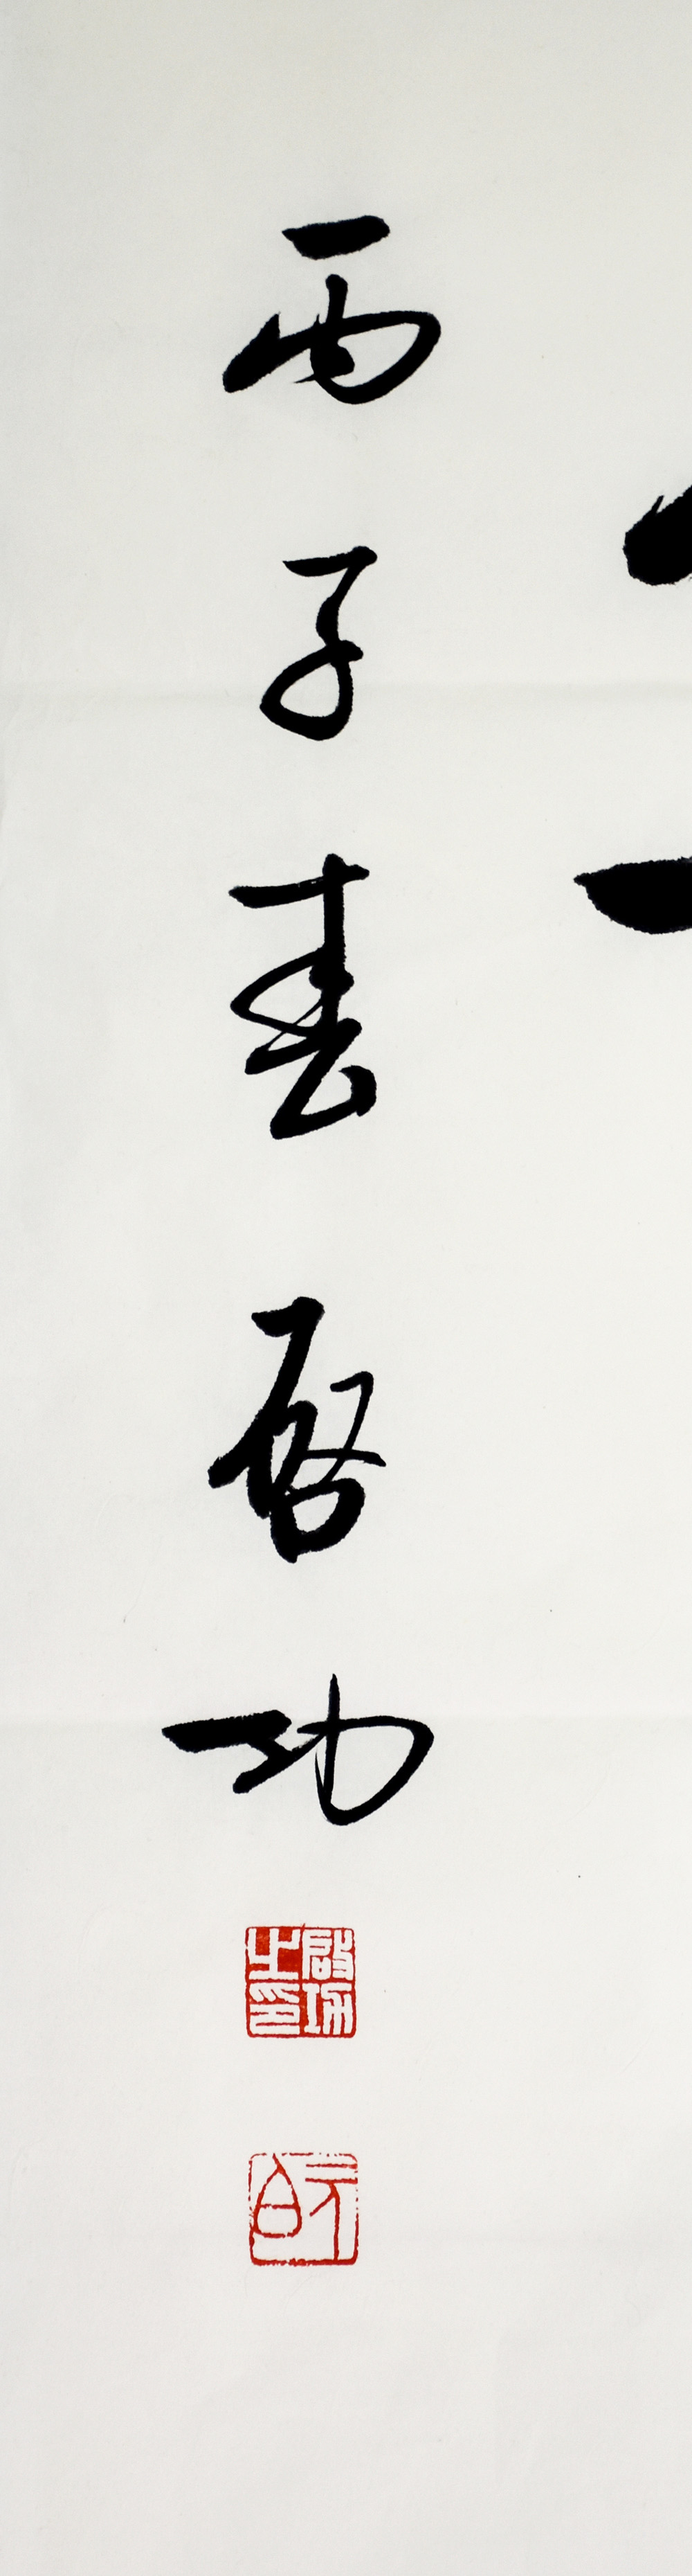 丙子春啓功
啓功之印
元白